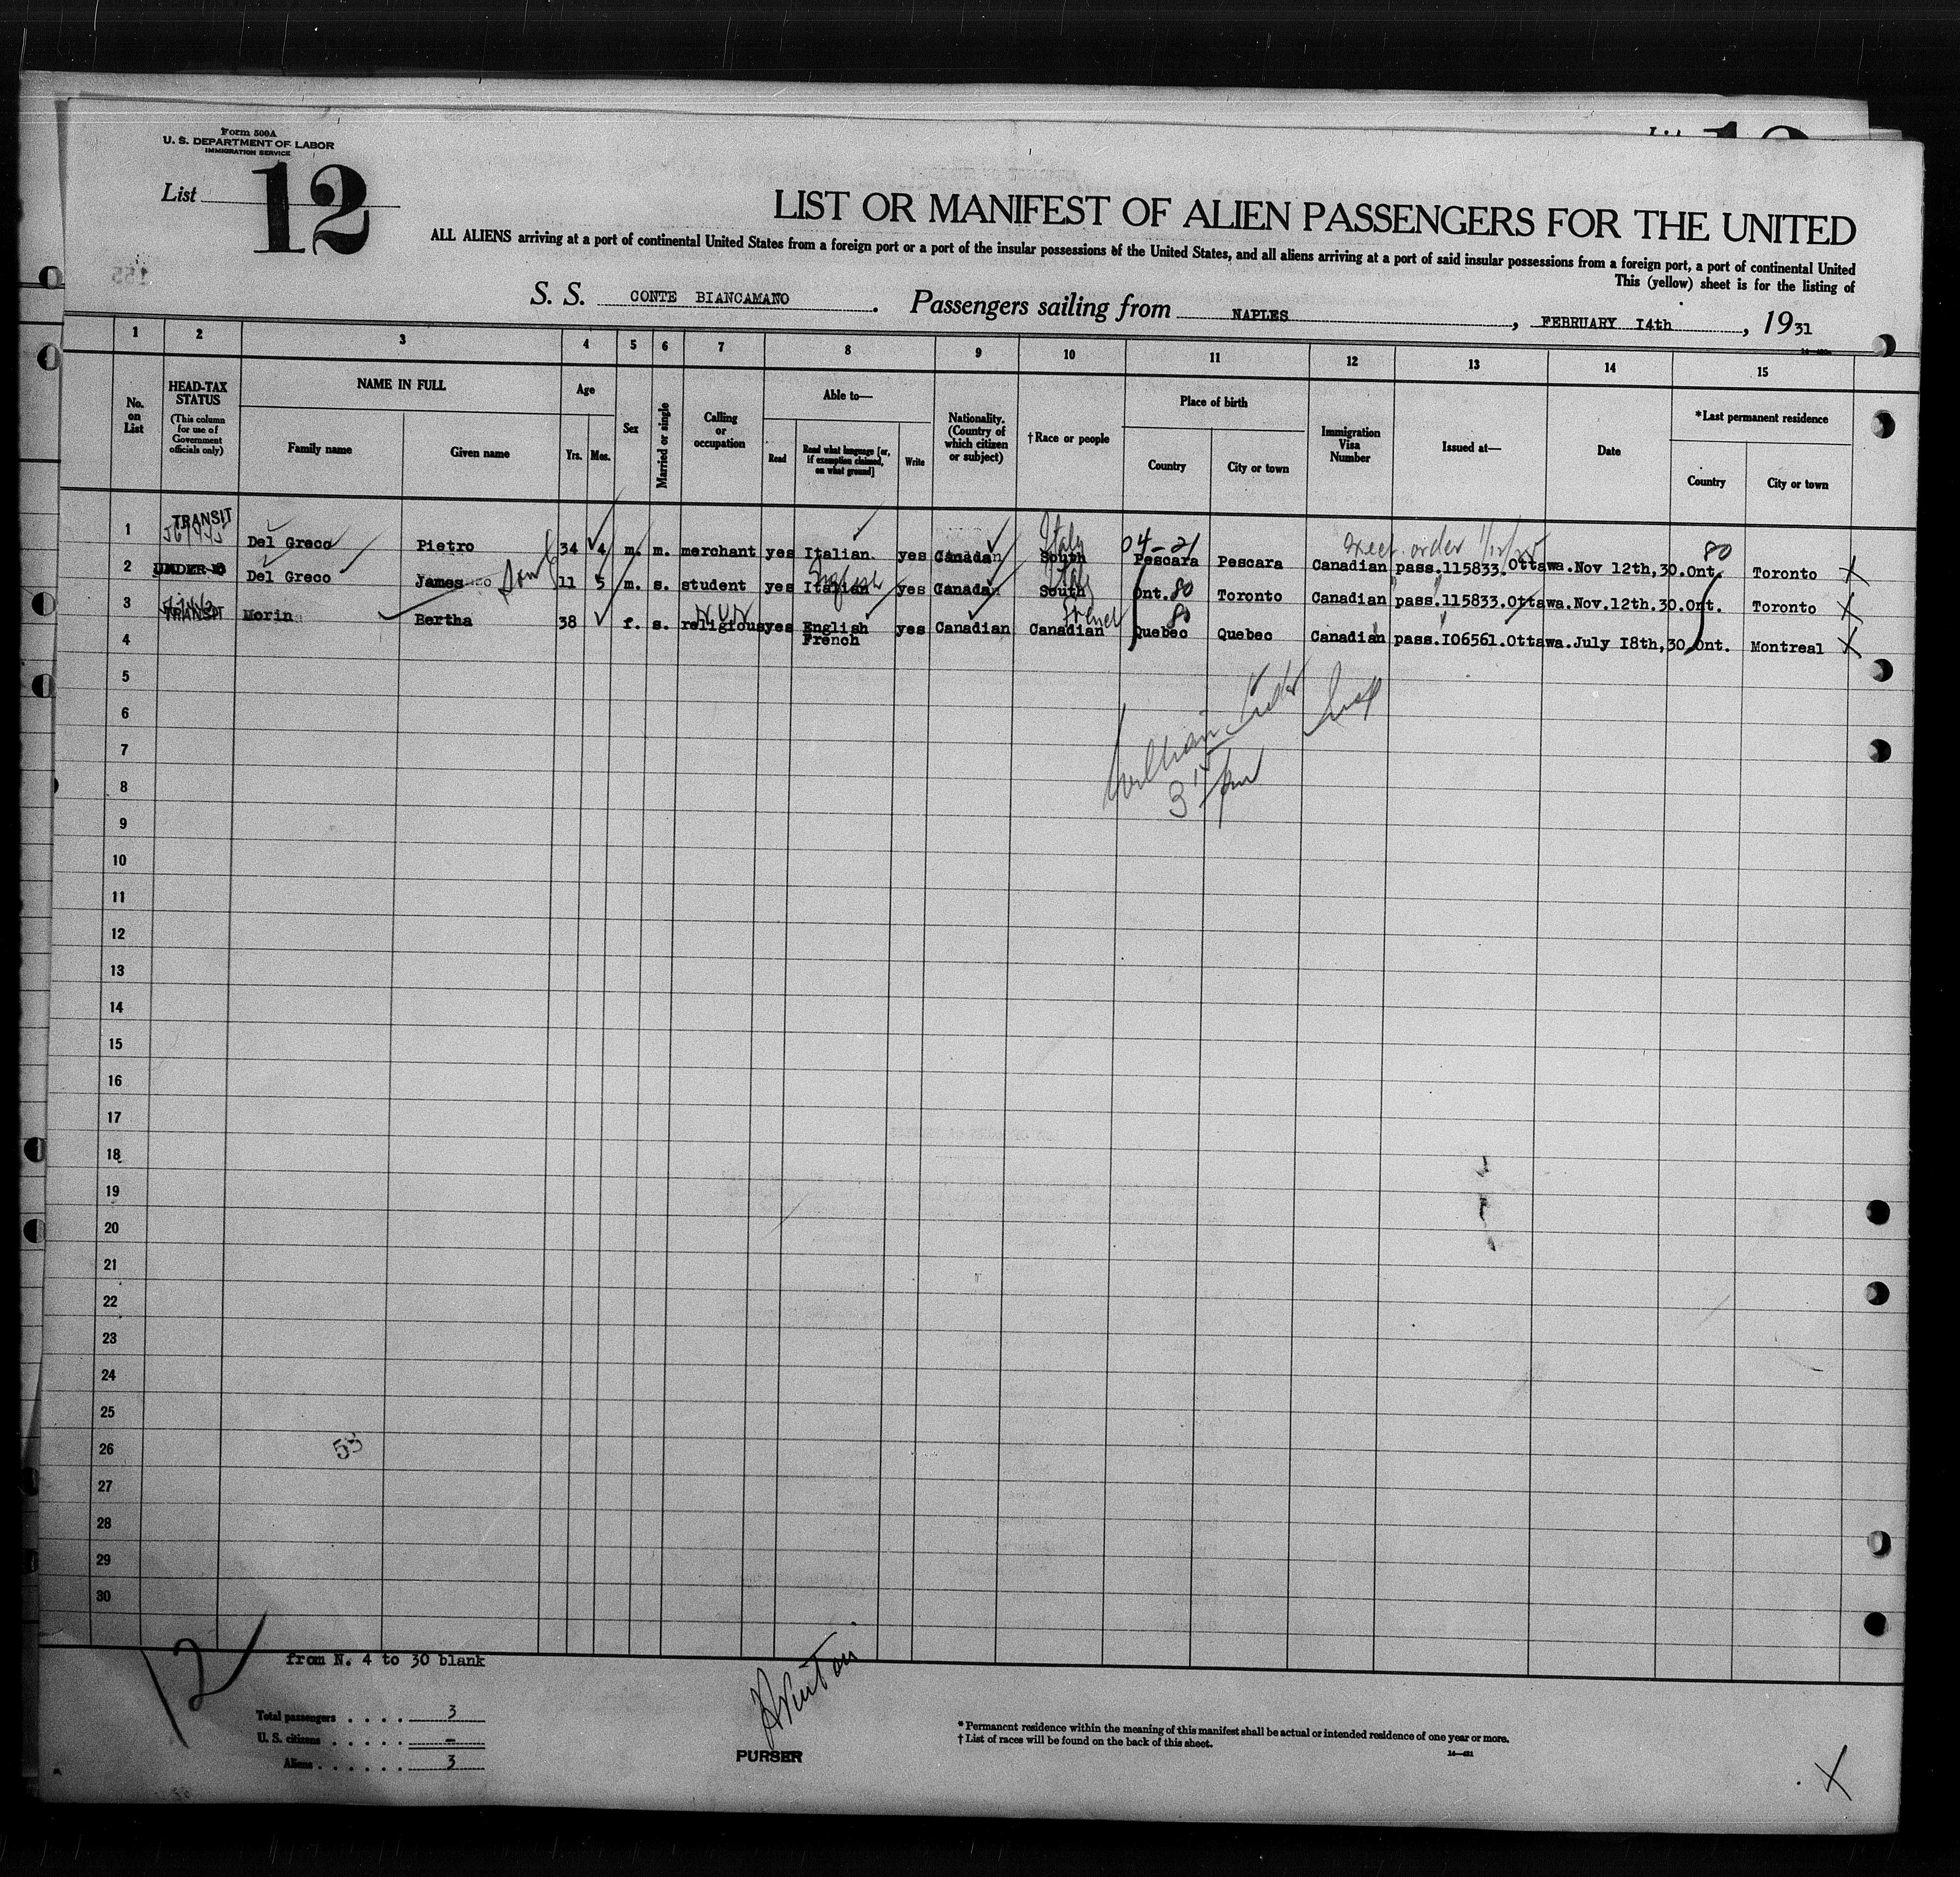 Form 500A
U. S. DEPARTMENT OF LABOR
IMMIGRATION SERVICE
List 12
LIST OR MANIFEST OF ALIEN PASSENGERS FOR THE UNITED
ALL ALIENS arriving at a port of continental United States from a foreign port or a port of the insular possessions of the United States, and all aliens arriving at a port of said insular possessions from a foreign port, a port of continental United
This (yellow) sheet is for the listing of
S. S. CONTE BIANCAMANO. Passengers sailing from NAPLES, FEBRUARY I4th, 1931
1 2 3 4 5 6 7 8 9 10 11 12 13 14 15
No. on List
HEAD-TAX STATUS
(This column for use of Government officials only)
NAME IN FULL
Family name
Given name
Age
Yrs.
Mos.
Sex
Married or single
Calling or occupation
Able to—
Read
Read what language [or, if exemption claimed, on what ground]
Write
Nationality. (Country of which citizen or subject)
†Race or people
Place of birth
Country
City or town
Immigration Visa Number
Issued at—
Date
*Last permanent residence
Country
City or town
TRANSIT
Italy 04-21 Exect. order 80
1 Del Greco Pietro 34 4 m. m. merchant yes Italian. yes Canadan South Pescara Pescara Canadian pass.115833.Ottawa.Nov 12th,30.Ont. Toronto X
English Italy
2 UNDER 16 Del Greco James son 11 5 m. s. student yes Italian yes Canadan South Ont. 80 Toronto Canadian pass.115833.Ottawa.Nov.12th.30.Ont. Toronto X
NUN French 80
3 TRANSIT Morin Bertha 38 f. s. religious yes English yes Canadian Canadian Quebec Quebec Canadian pass.I06561.Ottawa.July I8th,30.Ont. Montreal X
French
4
5
6
7
8
9
10
11
12
13
14
15
16
17
18
19
20
21
22
23
24
25
26
27
28
29
30
53
12
from N. 4 to 30 blank
Total passengers . . . . 3
U. S. citizens . . . . . —
Aliens . . . . . . 3
PURSER
* Permanent residence within the meaning of this manifest shall be actual or intended residence of one year or more.
† List of races will be found on the back of this sheet.
X